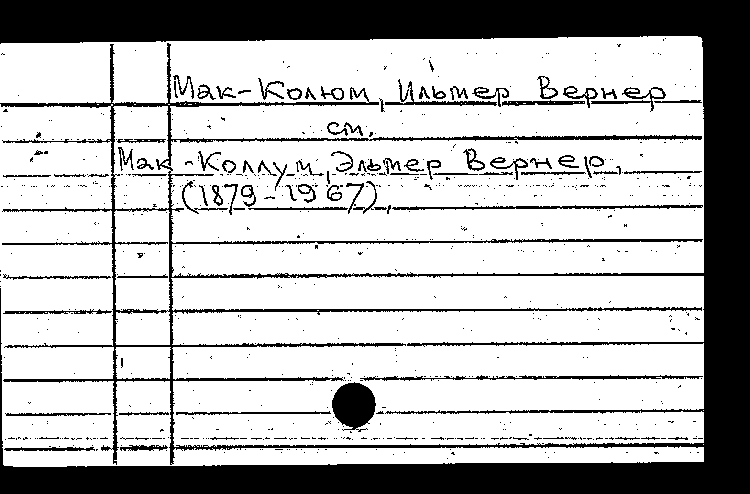 Мак-Колюм, Ильмер Вернер
см.
Мак-Коллум, Эльмер Вернер,
(1879-1967),